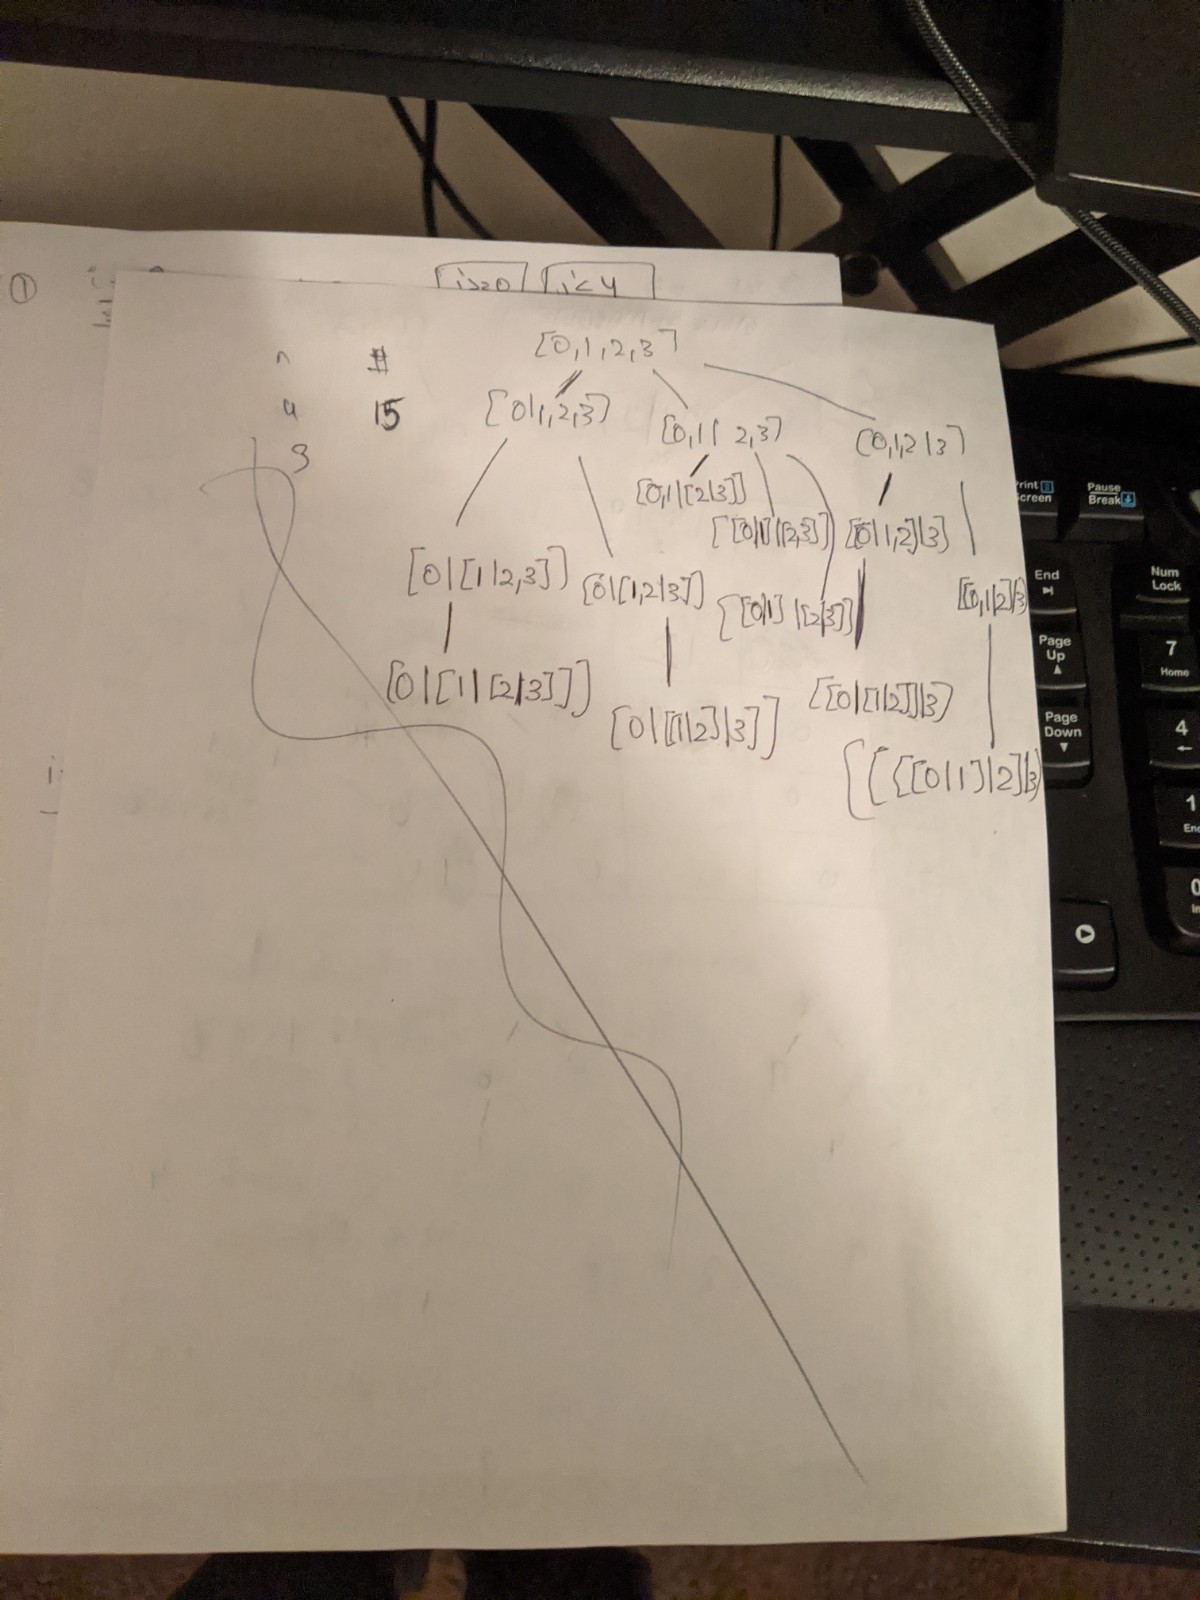 ①
i>=0 i<4
n #
4 15
3
[0,1,2,3]
[0|1,2,3] [0,1|2,3] [0,1,2|3]
[0,1|[2|3]]
[[0|1]|2,3] [[0|1,2]|3]
[0|[1|2,3]] [0|[1,2|3]] [[0|1]|[2|3]] [[0,1|2]|3]
[0|[1|[2|3]]] [0|[[1|2]|3]] [[0|[1|2]]|3]
[[[0|1]|2]|3]
Print
Screen
Pause
Break
End
Num
Lock
Page
Up
7
Home
Page
Down
4
1
0